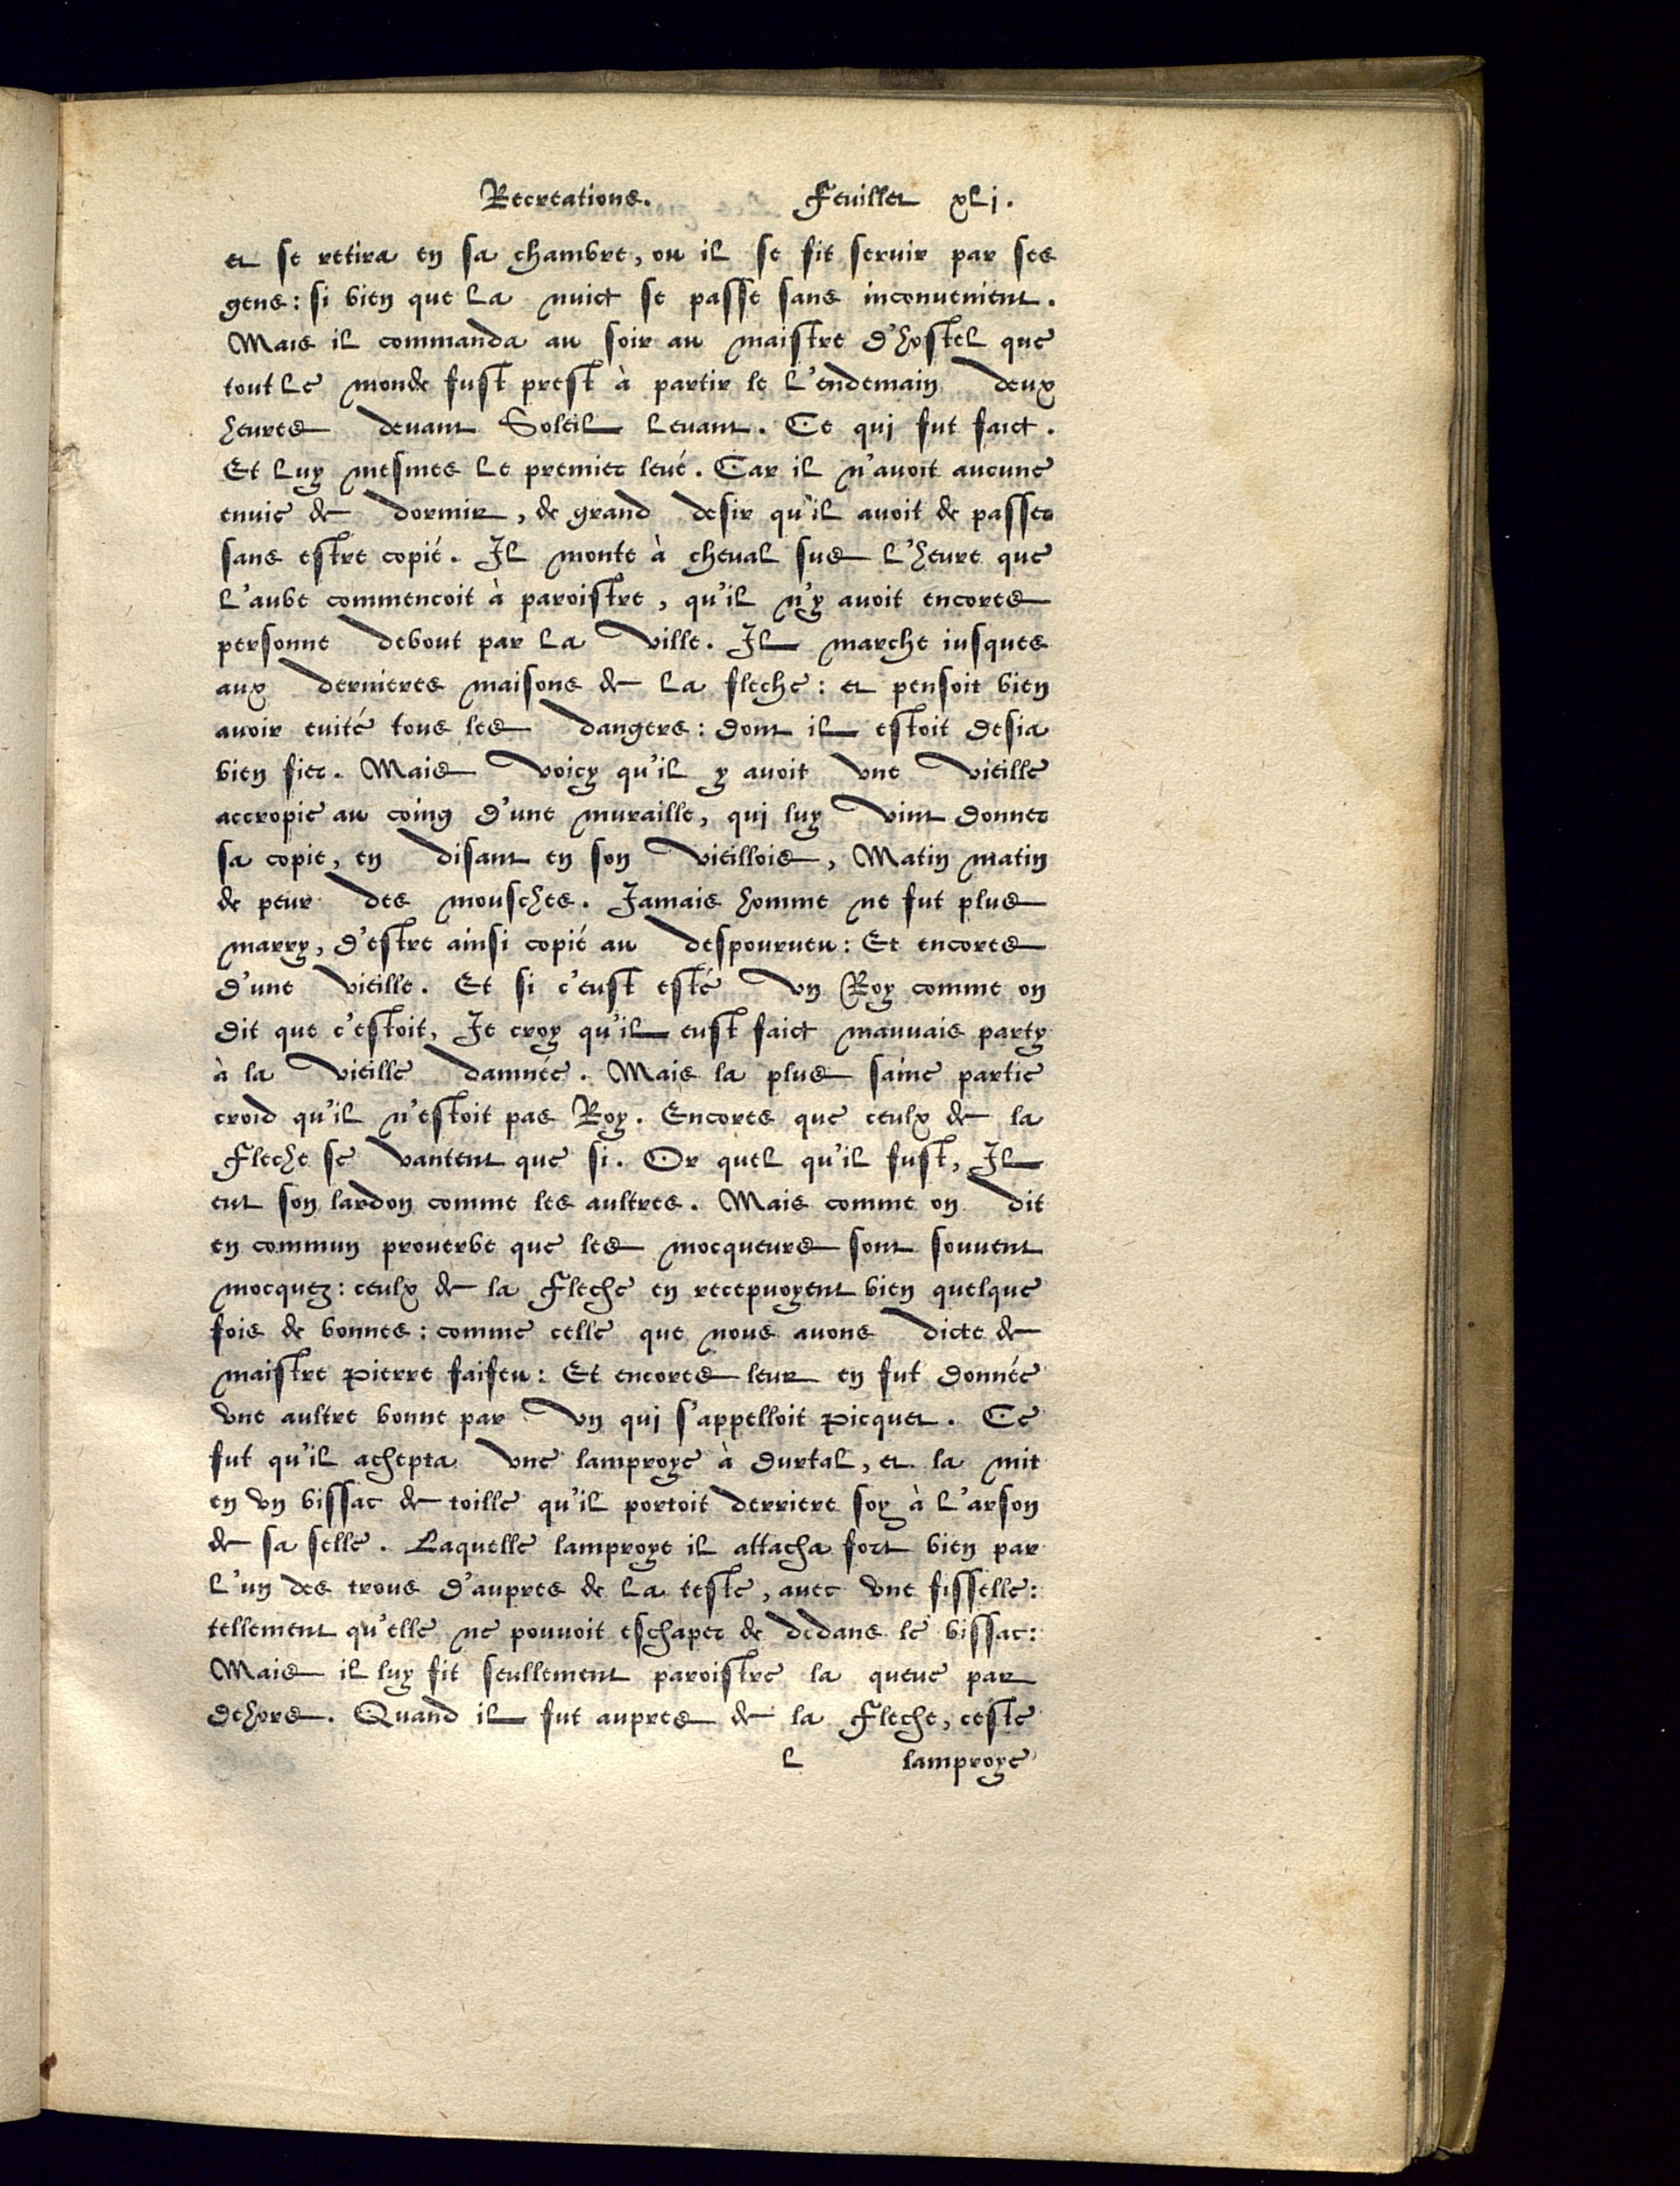 Recreations. Feuillet xlj.
et se retira en sa chambre, ou il se fit seruir par ses
gens: si bien que la nuict se passe sans inconuenient.
Mais il commanda au soir au maistre d'hostel que
tout le monde fust prest à partir le l'endemain deux
heures deuant Soleil leuant. Ce qui fut faict.
Et luy mesmes le premier leué. Car il n'auoit aucune
enuie de dormir, de grand desir qu'il auoit de passer
sans estre copié. Il monte à cheual sus l'heure que
l'aube commencoit à paroistre, qu'il n'y auoit encores
personne debout par la ville. Il marche iusques
aux dernieres maisons de la fleche: et pensoit bien
auoir euité tous les dangers: dont il estoit desia
bien fier. Mais voicy qu'il y auoit vne vieille
accropie au coing d'une muraille, qui luy vint donner
sa copie, en disant en son vieillois, Matin matin
de peur des mousches. Jamais homme ne fut plus
marry, d'estre ainsi copié au despourueu: Et encores
d'une vieille. Et si c'eust esté vn Roy comme on
dit que c'estoit, Je croy qu'il eust faict mauuais party
à la vieille damnée. Mais la plus saine partie
croid qu'il n'estoit pas Roy. Encores que ceulx de la
Fleche se vantent que si. Or quel qu'il fust, Il
eut son lardon comme les aultres. Mais comme on dit
en commun prouerbe que les mocqueurs sont souuent
mocquez: ceulx de la Fleche en recepuoyent bien quelque
fois de bonnes: comme celle que nous auons dicte de
maistre pierre faifeu: Et encores leur en fut donnée
vne aultre bonne par vn qui s'appelloit picquet. Ce
fut qu'il achepta vne lamproye à durtal, et la mit
en vn bissac de toille qu'il portoit derriere soy à l'arson
de sa selle. Laquelle lamproye il attacha fort bien par
l'un des trous d'aupres de la teste, auec vne fisselle:
tellement qu'elle ne pouuoit eschaper de dedans le bissac:
Mais il luy fit seullement paroistre la queue par
dehors. Quand il fut aupres de la Fleche, ceste
l lamproye